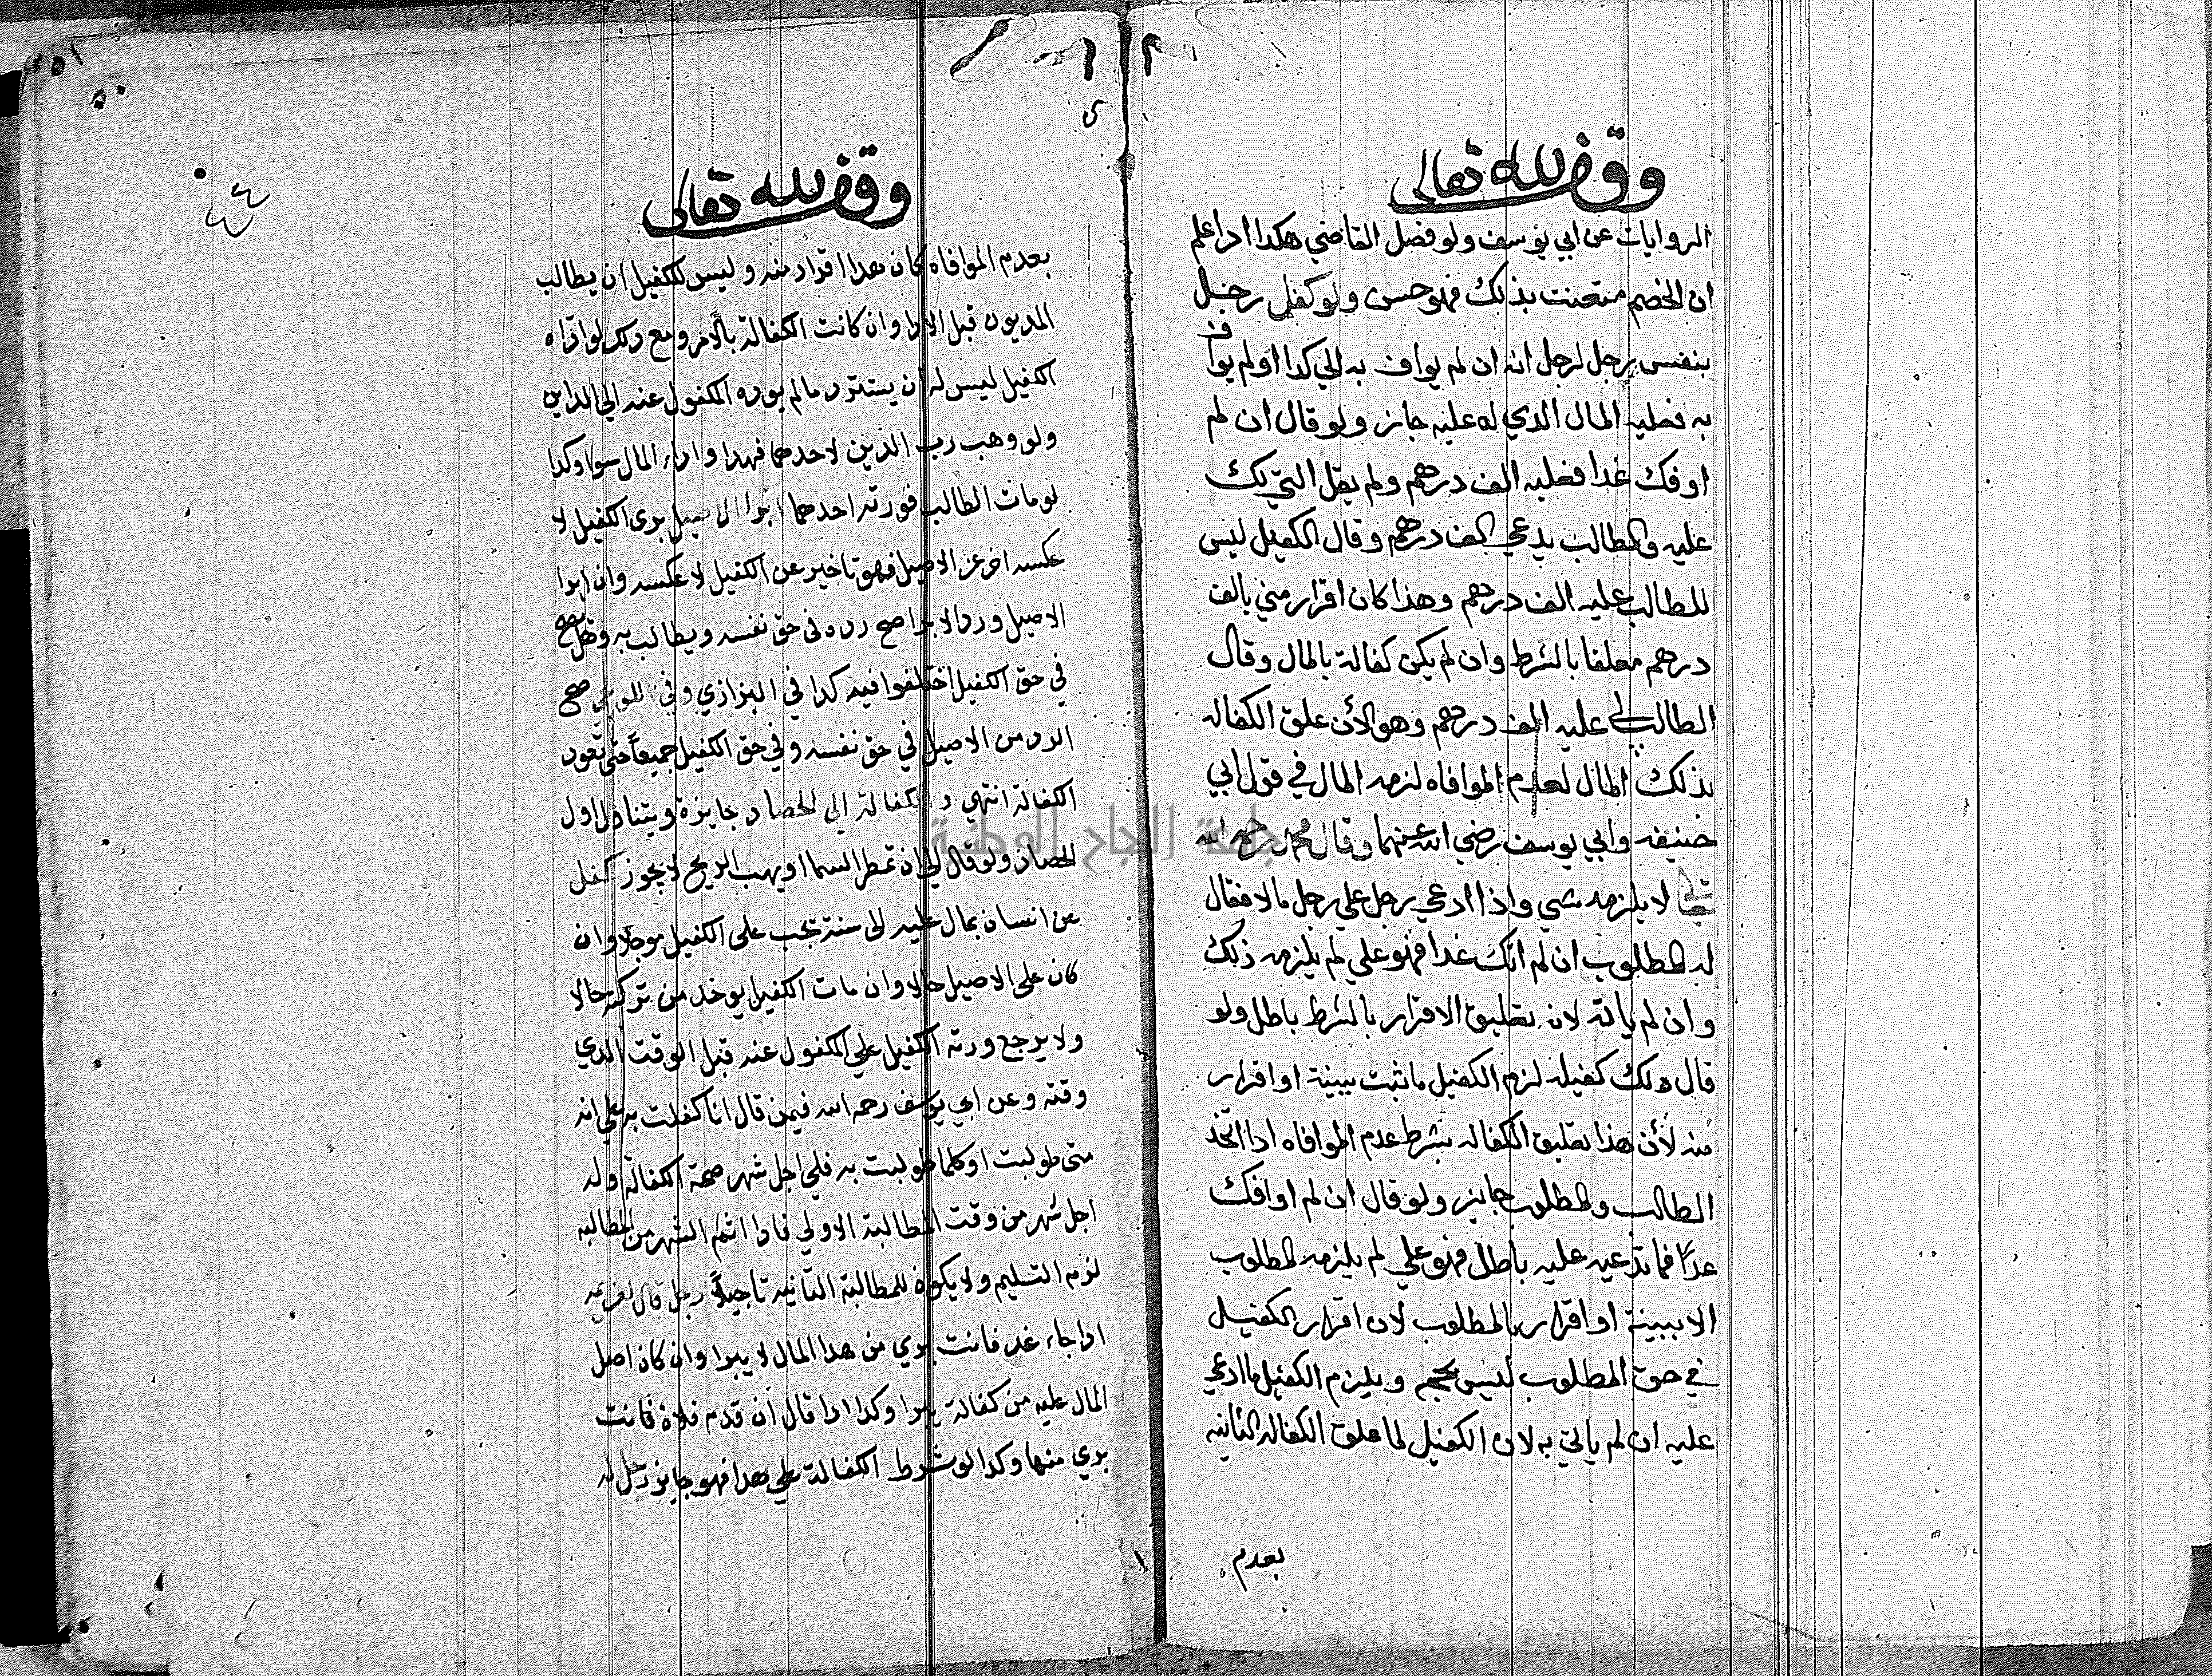 وقف لله تعالى
الروايات عن ابي يوسف ولو فصل القاضي هكدا ادا علم
ان الخصم متعنت بذلك فهو حسن ولو كفل رجل
بنفس رجل لرجل انه ان لم يواف به الي كدا او لم يواف
به فعليه المال الذي له عليه جائز ولو قال ان لم
اوفك غدا فعليه الف درهم ولم يقل التي لك
عليه والمطالب يدعي الف درهم وقال الكفيل ليس
للطالب عليه الف درهم وهذا كان اقرار مني بالف
درهم معلقا بالشرط وان لم يكن كفالة بالمال وقال
الطالب لي عليه الف درهم وهو الأن علق الكفاله
بذلك المال لعدم الموافاه لزمه المال في قول ابي
حنيفه وابي يوسف رضي الله عنهما وقال محمد رحمه الله
تعالى لا يلزمه شي واذا ادعي رجل علي رجل مالا فقال
له المطلوب ان لم اتك غدا فهو علي لم يلزمه ذلك
وان لم ياته لان تعليق الاقرار بالشرط باطل ولو
قال ذلك كفيله لزم الكفيل ما ثبت ببينة او اقرار
منه لأن هذا تعليق الكفاله بشرط عدم الموافاه ادا اتخد
الطالب والمطلوب جايز ولو قال ان لم اوافك
غدًا فما تدعيه عليه باطل فهو علي لم يلزمه المطلوب
الا ببينة او اقرار بالمطلوب لان اقرار الكفيل
في حق المطلوب ليس بحجم ويلزم الكفيل ما ادعي
عليه ان لم ياتي به لان الكفيل لما علق الكفاله الثانيه
بعدم
وقف لله تعالى
بعدم الموافاه كان هدا اقرار منه وليس للكفيل ان يطالب
المديون قبل الادا وان كانت الكفالة بالأمر ومع دلك لو اداه
الكفيل ليس له ان يسترد مالم يوده المكفول عنه الي الداين
ولو وهب رب الدين لاحدهما فهدا واداء المال سوا وكدا
لو مات الطالب فورثه احدهما ابرا الاصيل بري الكفيل لا
عكسه اخر عن الاصيل فهو تاخير عن الكفيل لا عكسه وان ابرا
الاصيل ورد الابرا صح رده في حق نفسه ويطالب به وهل يصح
في حق الكفيل اختلفوا فيه كدا في البزازي وفي صح
الرد من الاصيل في حق نفسه وفي حق الكفيل جميعاً حتى تعود
الكفالة انتهي والكفالة الي الحصاد جايزة ويتناول اول
الحصاد ولو قال الي ان تمطر السما او يهب الريح لا يجوز كفل
عن انسان بمال عليه الى سنة تجب على الكفيل موجلا وان
كان على الاصيل حالا وان مات الكفيل يوخد من تركته حالا
ولا يرجع ورثة الكفيل علي المكفول عنه قبل الوقت الدي
وقته وعن ابي يوسف رحمه الله فيمن قال انا كفلت به علي انه
متى طولبت او كلما طولبت به فلي اجل شهر صحة الكفالة وله
اجل شهر من وقت المطالبة الاولي فادا اتم الشهر من المطالبه
لزم التسليم ولا يكون للمطالبة الثانيه تأجيلاً رجل قال لغريمه
ادا جاء غد فانت بري من هدا المال لا يبرا وان كان اصل
المال عليه من كفالة يبرا وكدا ادا قال ان قدم فلان فانت
بري منها وكدا لو شرط الكفالة علي هدا فهو جايز رجل له